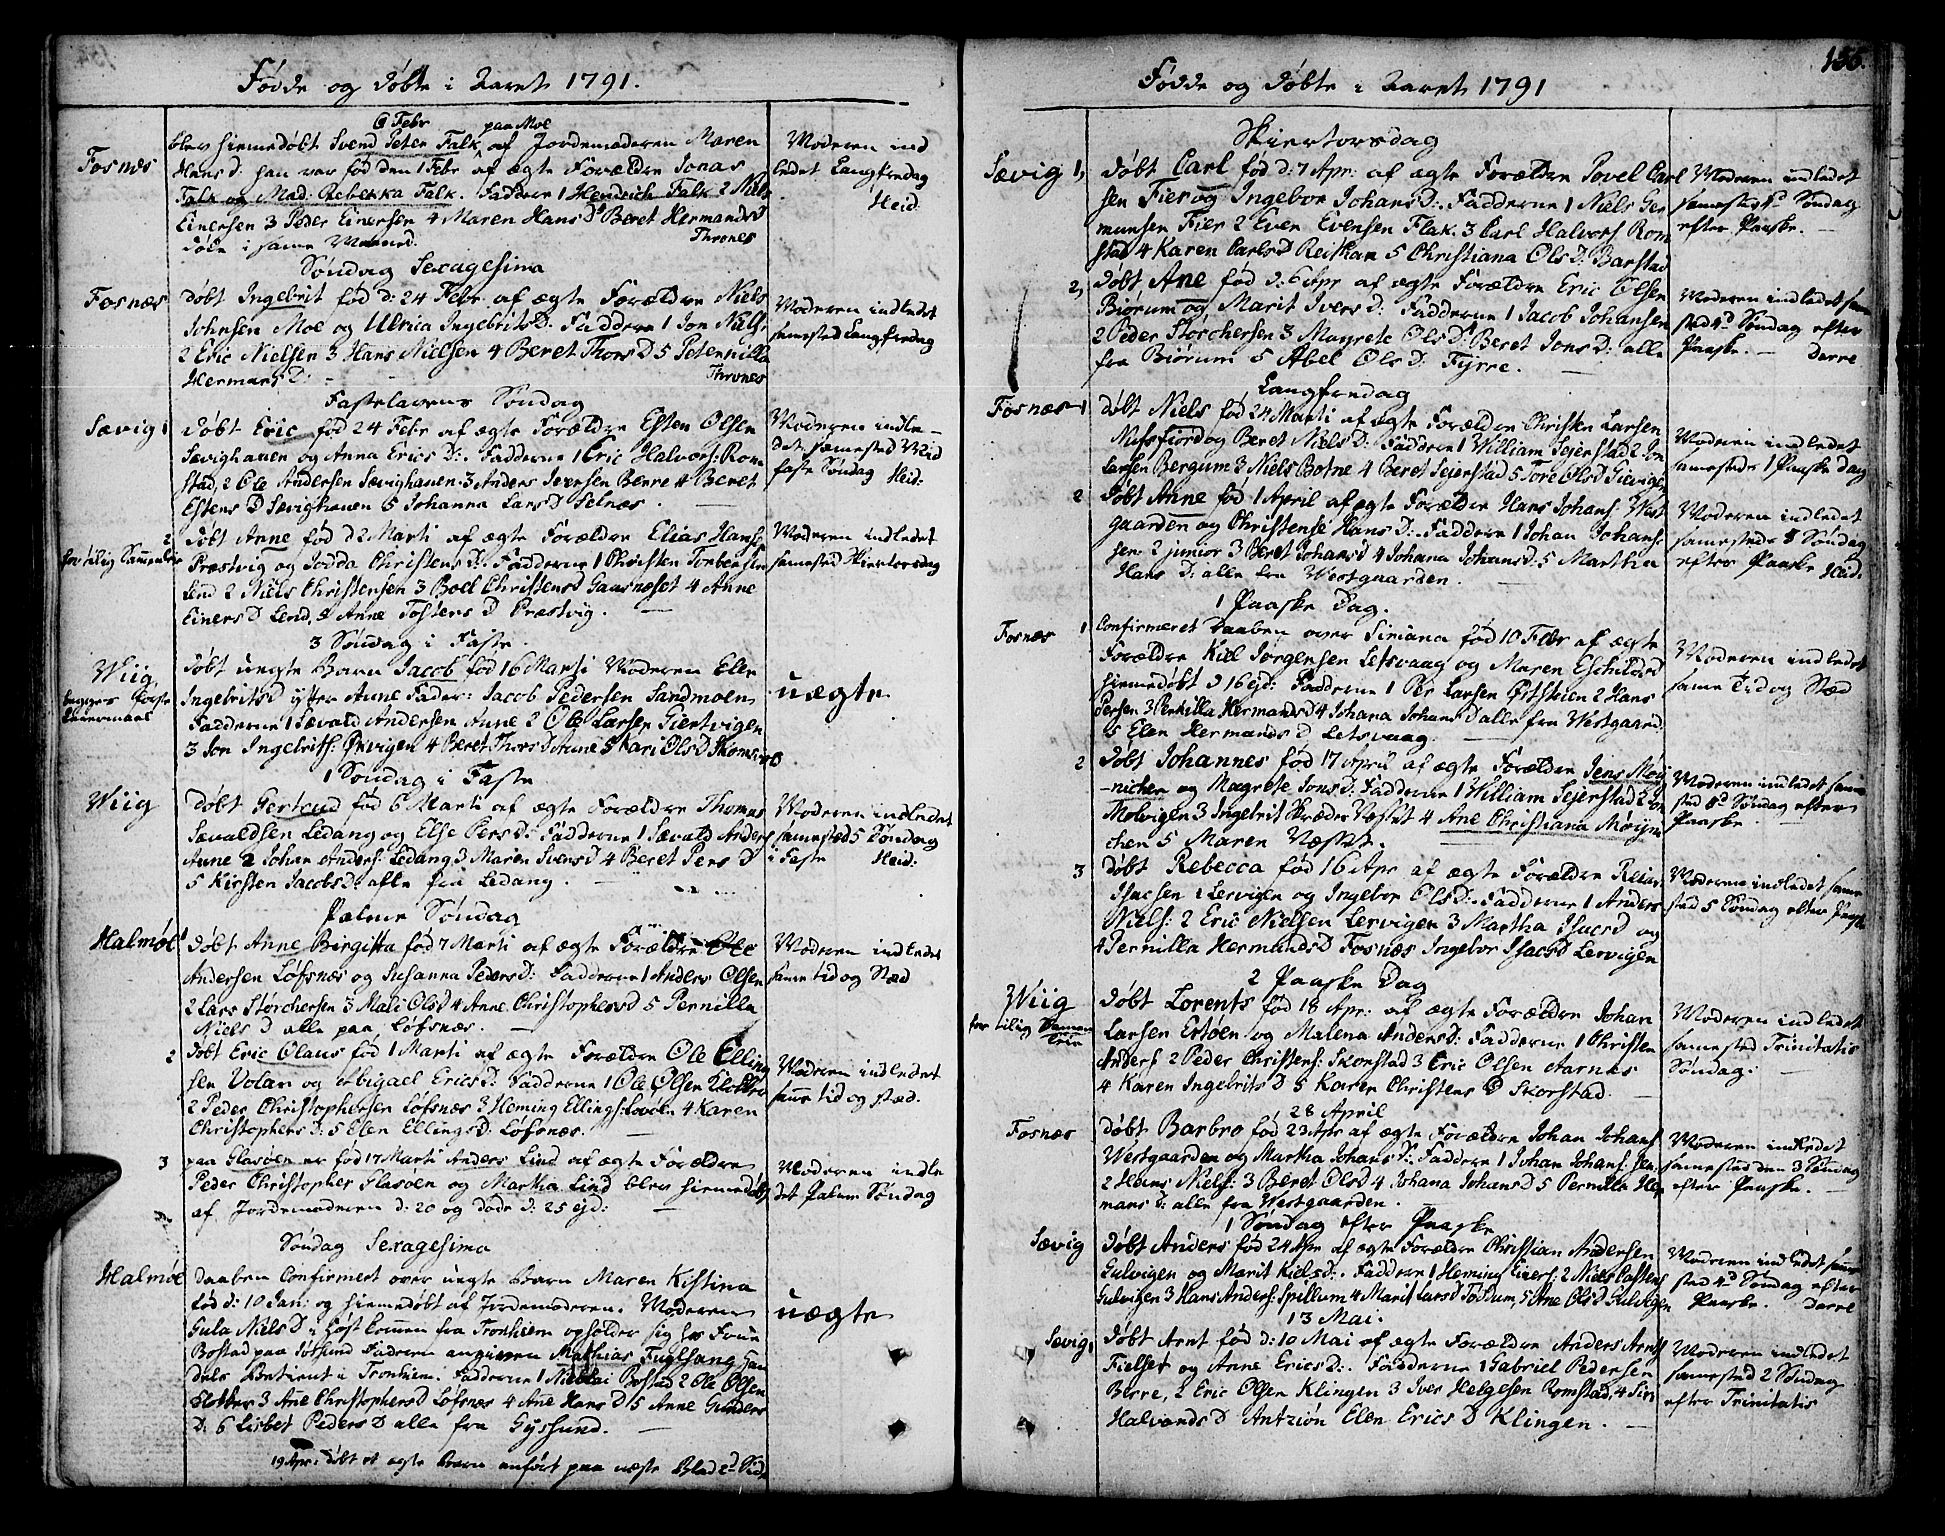 Fødde og døbte i Aaret 1791.
6 Febr
paa Moe
Fosnæs
blev hiemedøbt Svend Peter Falk af Jordemoderen Maren
Hans D: han var fød den 1 Febr af ægte Forældre Jonas
Falk og Mad. Rebekka Falk. Faddere 1 Hendrich Falk 2 Niels
Einersen 3 Peder Einersen 4 Maren Hans D 5 Beret Hermands D
Thrones
døde i same Maaned.
Moderen ind
ledet Langfredag
Heid:
Søndag Sexagesima
Fosnæs
døbt Ingebrit fød d: 24 Febr af ægte Forældre Niels
Johnsen Moe og Ulrica Ingebrits D: Faddere 1 Jon Niels:
2 Eric Nielsen 3 Hans Nielsen 4 Beret Thors D 5 Peternilla
Hermans D: Thrones
Moderen indledet
samested Langfredag
Fastelavens Søndag
Sævig 1
døbt Eric fød 24 Febr af ægte Forældre Esten Olsen
Sævighauen og Anna Erics D: Fadderne 1 Eric Halvors: Rom
stad, 2 Ole Andersen Sævighauen 3 Anders Iversen Berre 4 Beret
Estens D Sævighauen 5 Johanna Lars D Selnæs.
Moderen indle
det samested Mid
faste Søndag Heid:
2
døbt Anne fød d 2 Marti af ægte Forældre Elias Hans:
Præstvig og Jodda Christens D: Fadderne 1 Christen Torbersen
Lend 2 Niels Christensen 3 Boel Christens D Gaasnæset 4 Anne
Einers D Lend, 5 Anne Tostens D Præstvig.
Moderen indledet
samested Skiertorsdag
3 Søndag i Faste.
Wiig
døbt uægte Barn Jacob fød 16 Marti Moderen Elen
Ingebrits D Anne Fader: Jacob Pedersen Sandmoen
Fadderne 1 Sævald Andersen Aune 2 Ole Larsen Gientvigen
3 Jon Ingebrits: Økvigen 4 Beret Thors D Aune 5 Kari Ols D
uægte
1 Søndag i Faste
Wiig
døbt Gertrud fød 6 Marti af ægte Forældre Thomas
Sævaldsen Ledang og Else Pers D: Fadderne 1 Sævald Anders
Aune 2 Johan Anders: Ledang 3 Maren Svens D 4 Beret Pers D
5 Kirsten Jacobs D: alle fra Ledang.
Moderen indledet
samested 5 Søndag
i Faste Heid:
Palme Søndag
Halmøe 1
døbt Anne Birgitta fød 7 Marti af ægte Forældre Ole
Andersen Løfsnæs og Susanna Peders D: Fadderne 1 Anders Olsen
2 Lars Størchersen 3 Mali Ols D 4 Ane Christophers D 5 Pernilla
Niels D alle paa Løfsnæs.
Moderen indledet
same tid og Stæd
2
døbt Eric Olaus fød 1 Marti af ægte Forældre Ole Elling
sen Volan og Abigael Erics D: Fadderne 1 Ole Olsen Klotter
2 Peder Christophersen Løfsnæs 3 Heming Ellings: Lovøen 4 Karen
Christophers D: 5 Elen Ellings D: Løfsnæs.
Moderen indledet
same tid og stæd.
3
paa Glasøen er fød 17 Marti Anders Lind af ægte Forældre
Peder Christopher Glasøen og Martha Lind blev hiemedøbt
af Jordemoderen d: 20 og døde d: 25 ejd:
Moderen indle
det Palme Søndag
Søndag Sexagesima
Halmøe
daaben Confirmert over uægte Barn Maren Kistina
fød d: 10 Jan: og hiemedøbt af Jordemoderen. Moderen
Gula Niels D i Høst kommen fra Tronhiem opholder sig hos Frue
Bostad paa Søesund Faderen angiven Mathias Fuglsang Han
dels Betient i Tronhiem. Fadderne 1 Nicolai Bostad 2 Ole Olsen
Klotter 3 Ane Christophers D Løfsnæs 4 Ane Hans D 5 Anne Gunders
D: 6 Lisbet Peders D alle fra Gyssund.
uægte
19 Apr: døbt et ægte Barn anført paa næste Blad 2d Side
155.
Fødde og døbte i Aaret 1791
Skiertorsdag
Sævig 1,
døbt Carl fød d: 7 Apr: af ægte Forældre Povel Carl
sen Fier og Ingebor Johans D: Fadderne 1 Niels Ger
munsen Fier 2 Even Evensen Flak. 3 Carl Halvors: Rom
stad 4 Karen Carls D Reithan 5 Christiana Ols D: Barstad
Moderen indledet
samested 1d Søndag
efter Paaske.
2,
døbt Ane fød d: 6 Apr af ægte Forældre Eric Olsen
Biørum og Marit Ivers D: Fadderne 1 Jacob Johansen
2 Peder Størchersen 3 Magrete Ols D: 4 Beret Jons D: alle
fra Biørum 5 Abel Ols D: Fyrre.
Moderen indledet same
sted 4d Søndag efter
Paaske. Derre
Langfredag
Fosnæs 1
døbt Niels fød 24 Marti af ægte Forældre Christen Larsen
Nufsfiord og Beret Niels D: Fadderne 1 William Sejerstad 2 Jon
Larsen Bergum 3 Niels Botne 4 Beret Sejerstad 5 Tore Ols D
Moderen indledet
samesteds 1 Paaske dag
2
døbt Anne fød 1 April af ægte Forældre Hans Johans: West
gaarden og Christense Hans D: Fadderne 1 Johan Johan
sen 2 junior 3 Beret Johans D 4 Johana Johans D: 5 Martha
Hans D: alle fra Westgaarden.
Moderen indledet
samesteds Søndag
efter Paaske Heid:
1 Paaske Dag.
Fosnæs 1
Confirmeret Daaben over Siriana fød 10 Febr af ægte
Forældre Kiel Jørgensen Letsvaag og Maren Eschilds D
hiemedøbt d 16 ejd: Fadderne 1 Per Larsen 2 Hans
Persen 3 Pernilla Hermands D 4 Johana Johans D alle fra Westgaard:
5 Elen Hermands D Letsvaag.
Moderen indledet
same Tid og Stæd
2
døbt Johannes fød 17 April af ægte Forældre Jens Møy
nichen og Magrete Jons D: Fadderne 1 William Sejerstad 2 Jon
Molvigen 3 Ingebrit Skræder 4 Ane Christiana Møyni
chen 5 Maren Næsset.
Moderen indledet same
sted Søndag efter
Paaske.
3
døbt Rebecca fød 16 Apr af ægte Forældre Reiar
Isacsen i Lervigen og Ingebor Ols D: Fadderne 1 Anders
Niels: 2 Eric Nielsen Lervigen 3 Martha Isacs D og
4 Pernilla Hermands D Fosnæs Ingebor Isacs D Lervigen
Moderen indledet same
sted 5 Søndag efter Paaske
2 Paaske Dag
Wiig
for tilig Samen
leie
døbt Lorents fød 18 Apr: af ægte Forældre Johan
Larsen Ertøen og Malena Anders D: Fadderne 1 Christen
Anders 2 Peder Christens: Skorstad 3 Eric Olsen Aarnæs
4 Karen Ingebrits D 5 Karen Christens D Skorstad.
Moderen indledet
samested Trinitatis
Søndag:
28 April
Fosnæs
døbt Barbro fød 23 Apr af ægte Forældre Johan Johans:
Westgaarden og Martha Johans D: Faddere 1 Johan Johans: Sen.
2 Hans Niels: 3 Beret Ols D 4 Johana Johans D 5 Pernilla Her
mans D: alle fra Westgaarden.
Moderen indledet
samested den 3 Søndag
efter Paaske.
1 Søndag efter Paaske
Sævig
døbt Anders fød 24 Apr af ægte Forældre Christian Andersen
Gulvigen og Marit Kiels D: Fadderne 1 Heming Einers: 2 Niels Castens
Gulvigen 3 Hans Anders: Spillum 4 Marit Lars D Tøtdum, 5 Ane Ols D Gulvigen
Moderen indledet same
sted 4d Søndag efter
Paaske. Derre
13 Mai.
Sævig 1
døbt Arnt fød d: 10 Mai af ægte Forældre Anders Arnts
Fielset og Anne Erics D: Fadderne 1 Gabriel Pedersen
Berre, 2 Eric Olsen Klingen 3 Iver Helgesen Romstad, 4 Siri
Halvards D Antziøn Elen Erics D Klingen.
Moderen indledet
samested 2 Søndag
efter Trinitatis